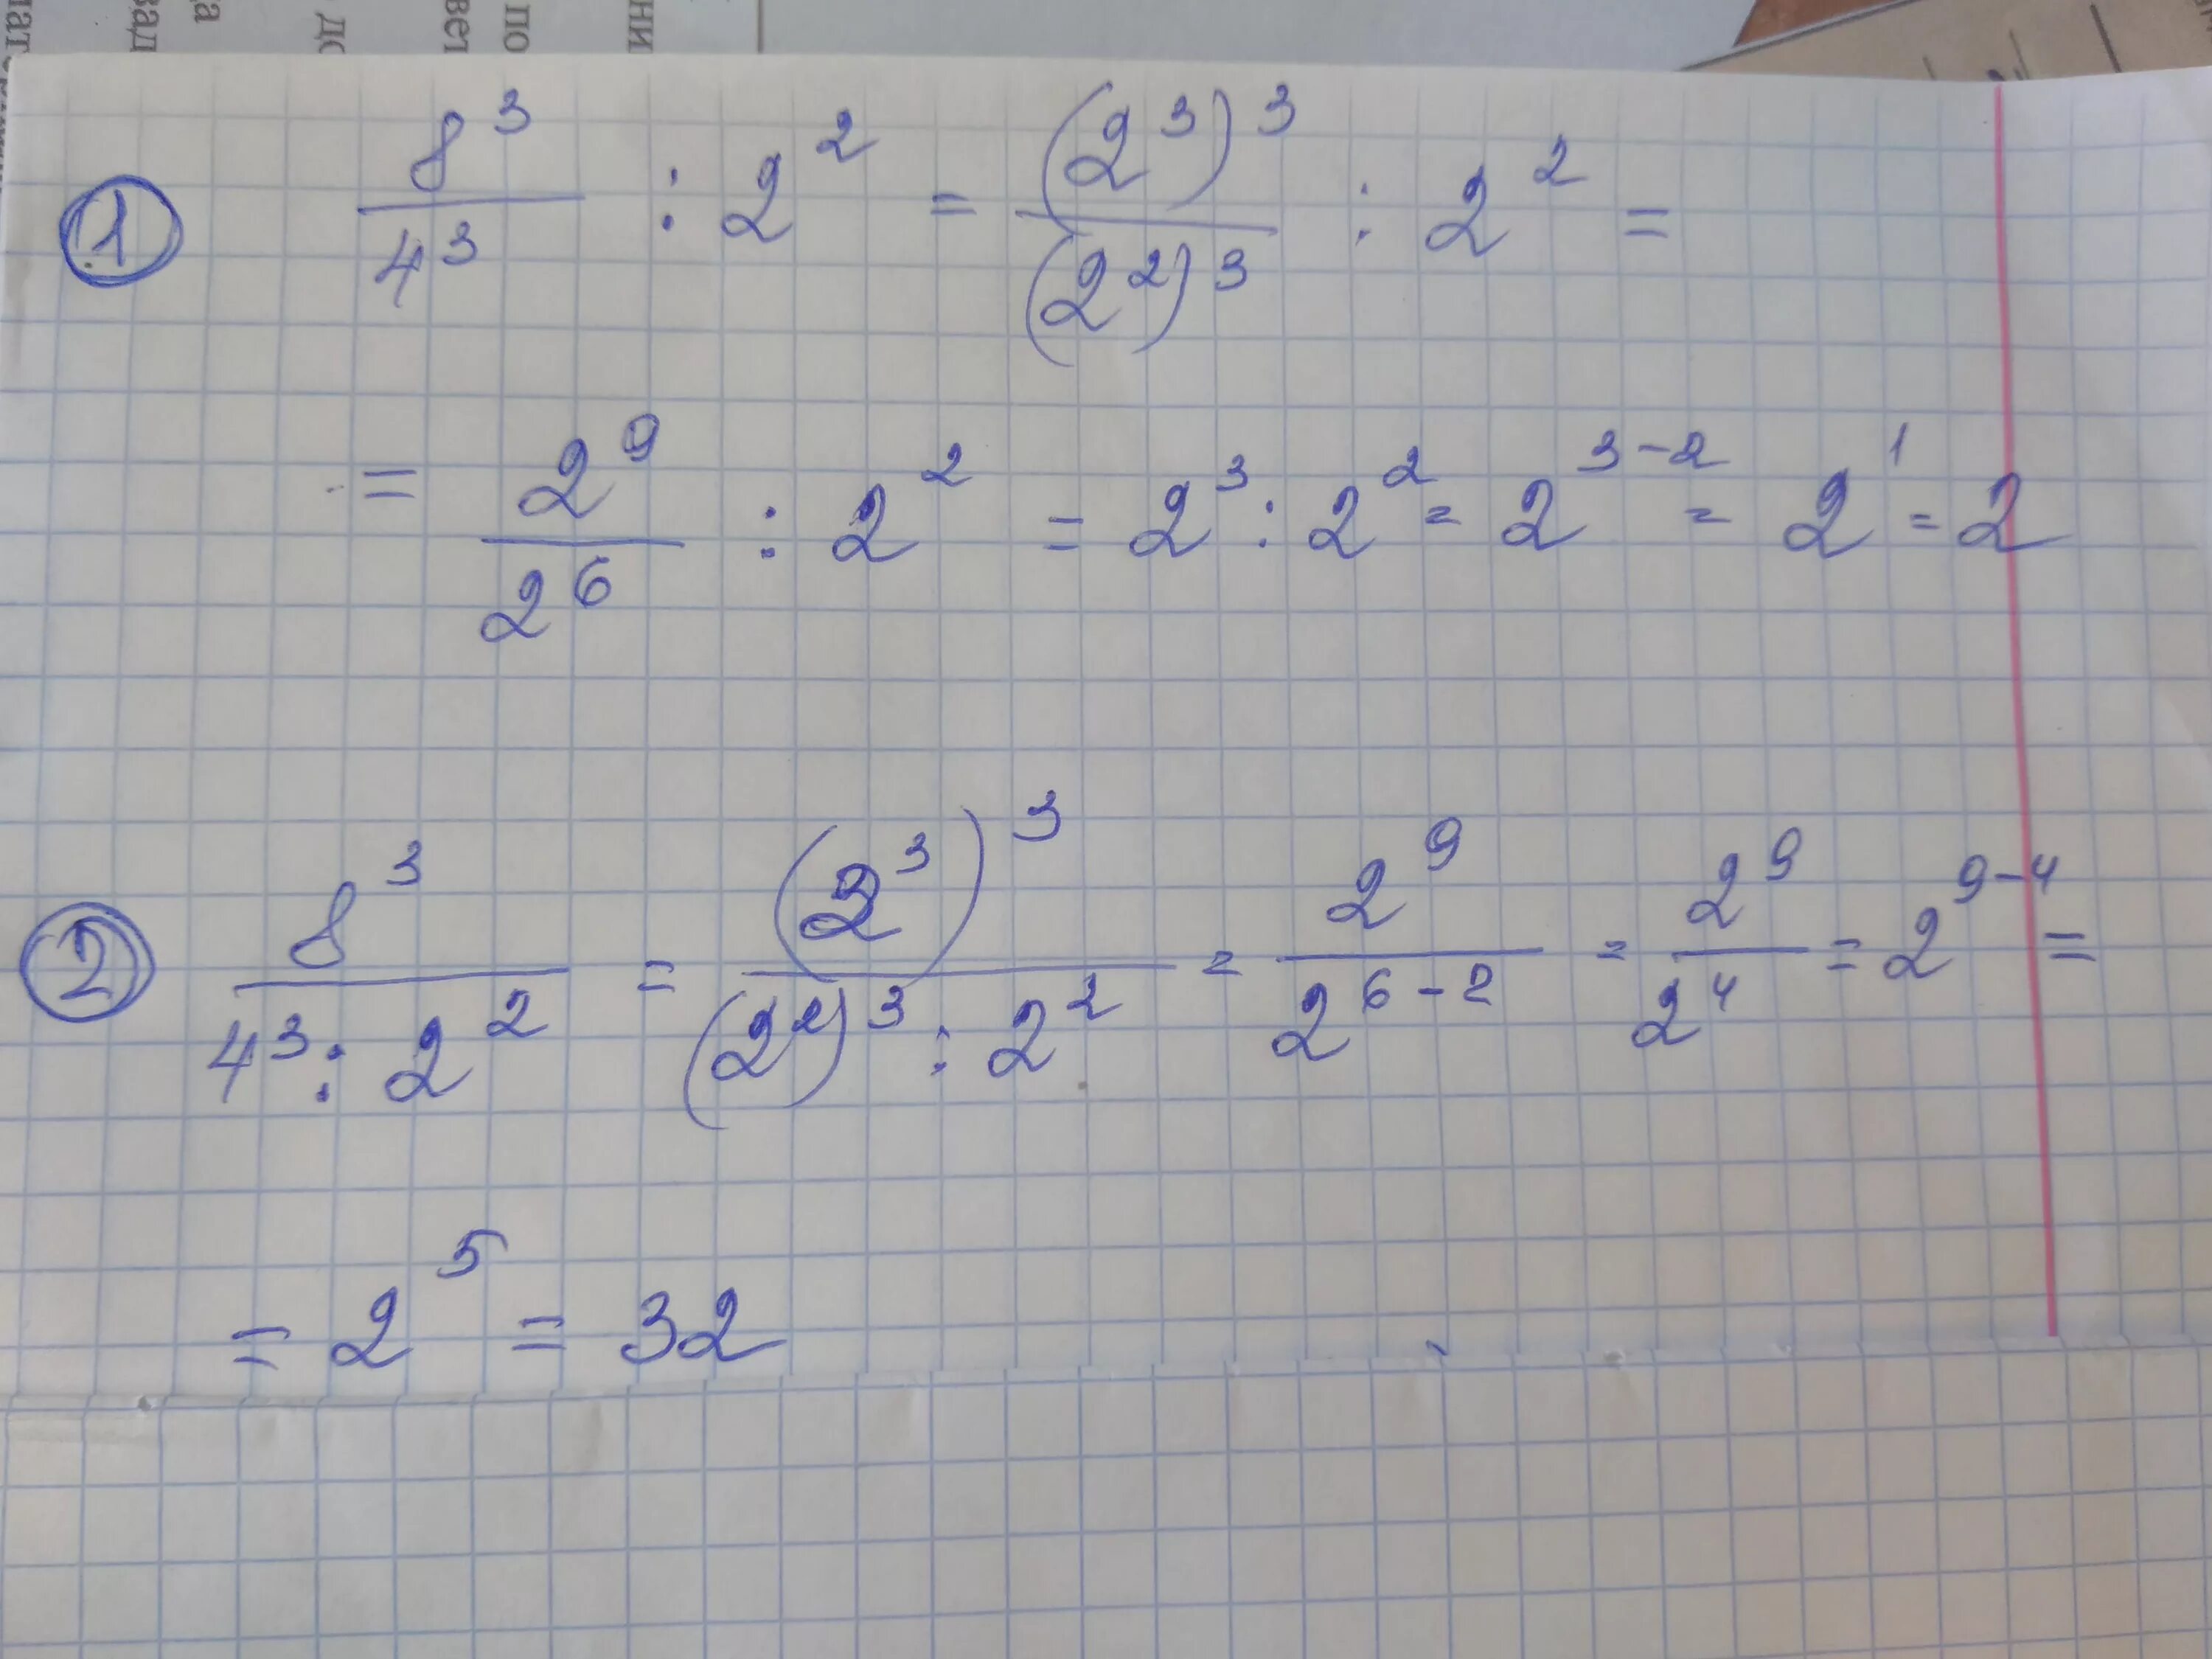 ① 8³/4³ : 2² = (2³)³/(2²)³ : 2² =
= 2⁹/2⁶ : 2² = 2³ : 2² = 2³⁻² = 2¹ = 2
② 8³/(4³ : 2²) = (2³)³/((2²)³ : 2²) = 2⁹/2⁶⁻² = 2⁹/2⁴ = 2⁹⁻⁴ =
= 2⁵ = 32